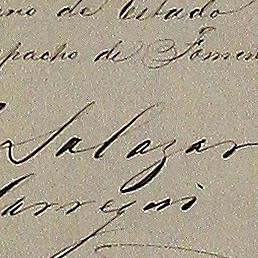 de Estado
pacho de Fomen
Salazar
larregui